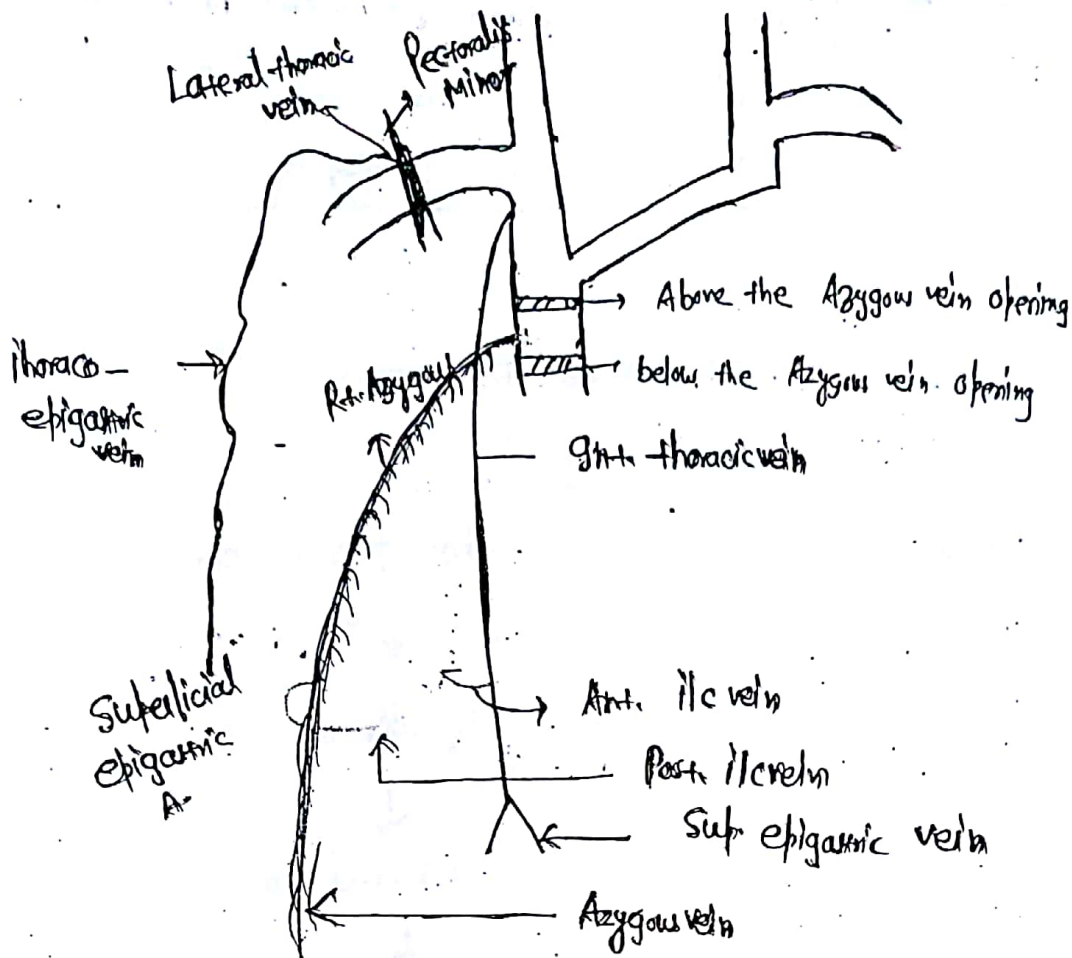 Lateral thoracic
vein
Pectoralis
Minor
Above the Azygous vein opening
below the Azygous vein opening
Thoraco-
epigastric
vein
Rt. Azygous
Int. thoracic vein
Superficial
epigastric
A.
Ant. i/c vein
Post. i/c vein
Sup. epigastric vein
Azygous vein